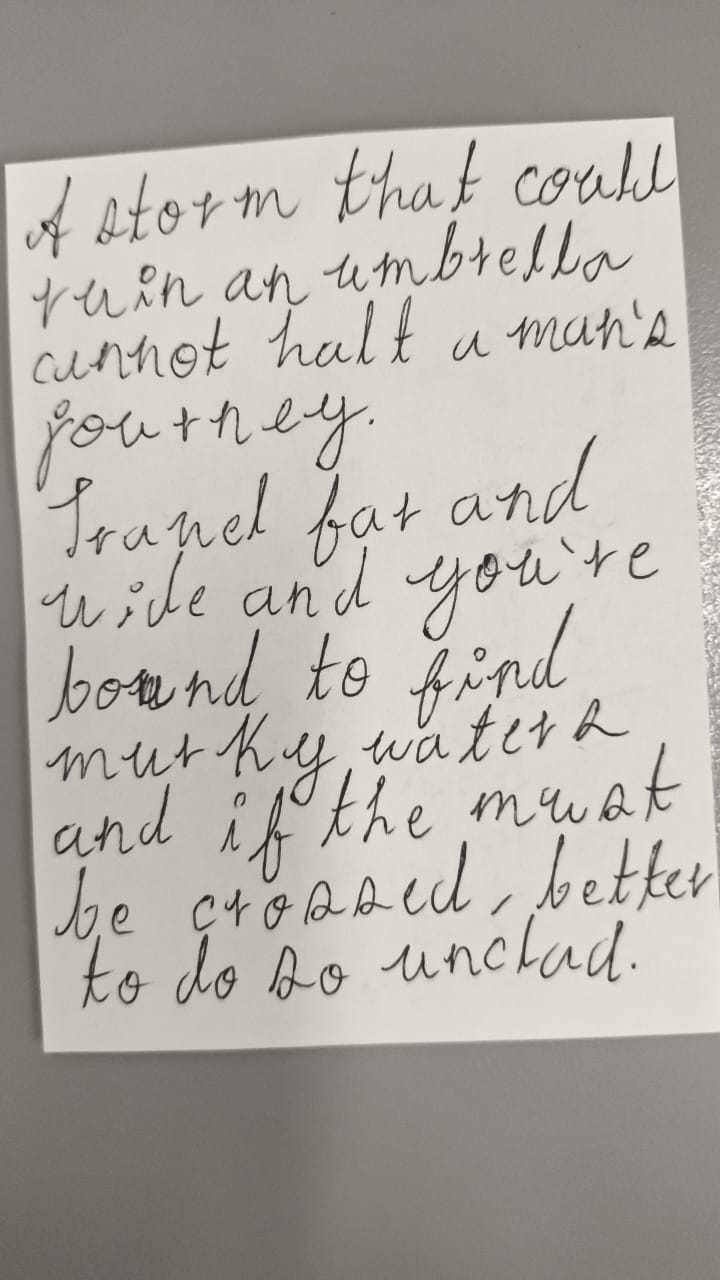 A storm that could
ruin an umbrella
cannot halt a man's
journey.
Travel far and
wide and you're
bound to find
murky waters
and if the must
be crossed, better
to do so unclad.